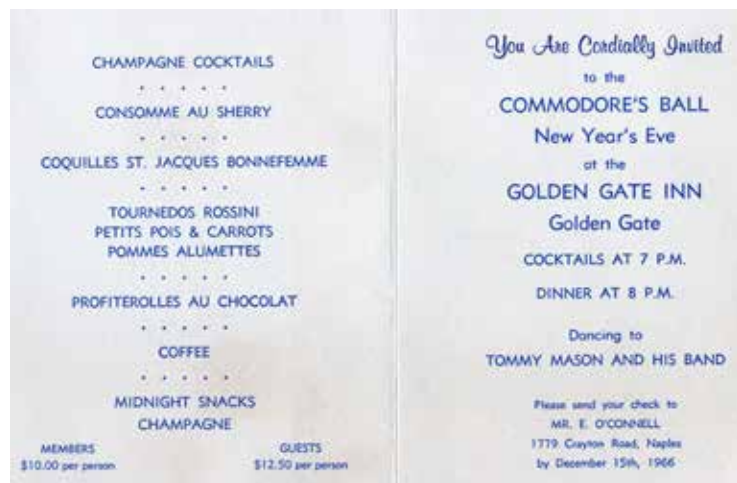 CHAMPAGNE COCKTAILS
CONSOMME AU SHERRY
COQUILLES ST. JACQUES BONNEFEMME
TOURNEDOS ROSSINI
PETITS POIS & CARROTS
POMMES ALUMETTES
PROFITEROLLES AU CHOCOLAT
COFFEE
MIDNIGHT SNACKS
CHAMPAGNE
MEMBERS
$10.00 per person
GUESTS
$12.50 per person
You Are Cordially Invited
to the
COMMODORE'S BALL
New Year's Eve
at the
GOLDEN GATE INN
Golden Gate
COCKTAILS AT 7 P.M.
DINNER AT 8 P.M.
Dancing to
TOMMY MASON AND HIS BAND
Please send your check to
MR. E. O'CONNELL
1779 Crayton Road, Naples
by December 15th, 1966